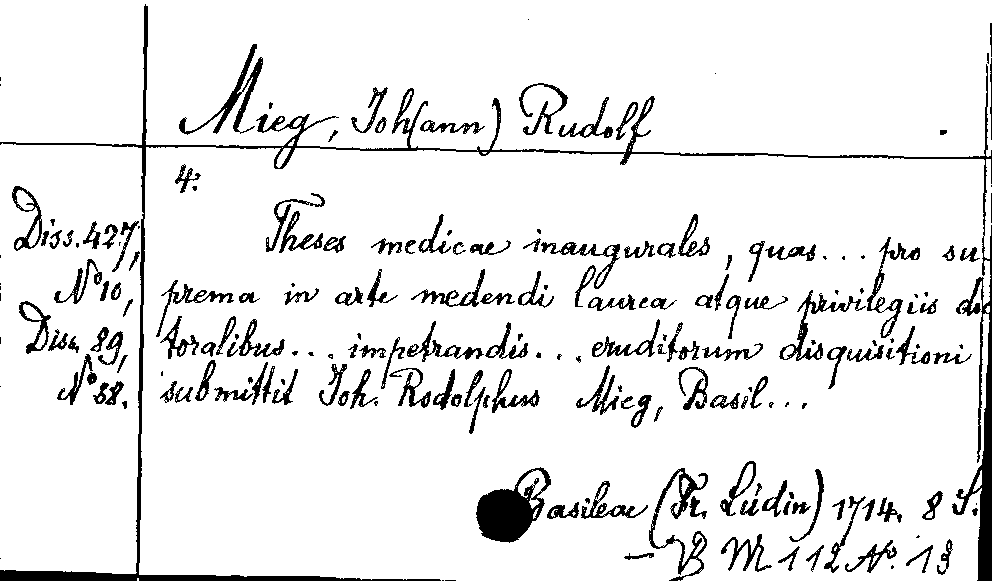 Mieg, Joh(ann) Rudolf
4:
Diss. 427,
N° 10,
Diss. 89,
N° 88.
Theses medicae inaugurales, quas... pro su-
prema in arte medendi laurea atque privilegiis doc
toralibus... impetrandis... eruditorum disquisitioni
submittit Joh. Rodolphus Mieg, Basil...
Basileae (Fr. Lüdin) 1714. 8 S.
– B M 112 N° 13